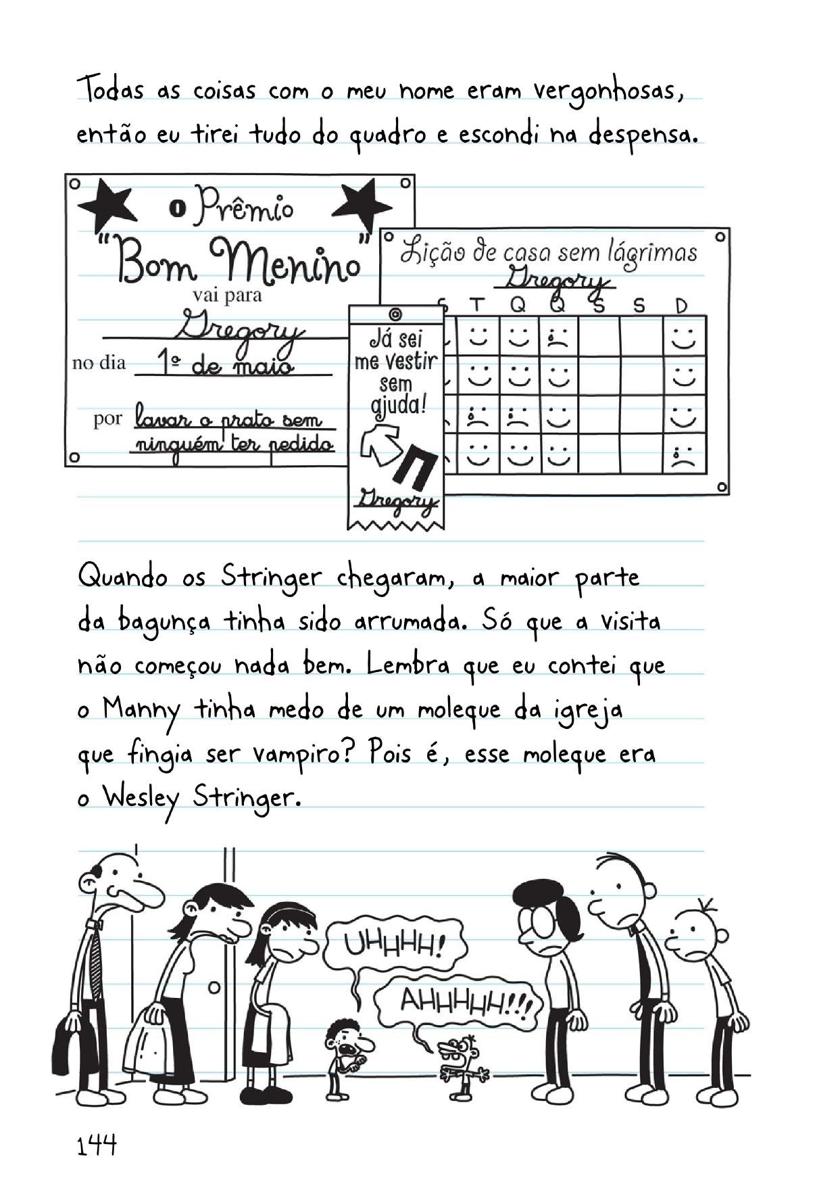 Todas as coisas com o meu nome eram vergonhosas,
então eu tirei tudo do quadro e escondi na despensa.
O Prêmio
"Bom Menino"
vai para
Gregory
no dia 1º de maio
por lavar o prato sem
ninguém ter pedido
Já sei
me vestir
sem
ajuda!
Gregory
Lição de casa sem lágrimas
Gregory
S T Q Q S S D
Quando os Stringer chegaram, a maior parte
da bagunça tinha sido arrumada. Só que a visita
não começou nada bem. Lembra que eu contei que
o Manny tinha medo de um moleque da igreja
que fingia ser vampiro? Pois é, esse moleque era
o Wesley Stringer.
UHHHH!
AHHHHH!!!
144